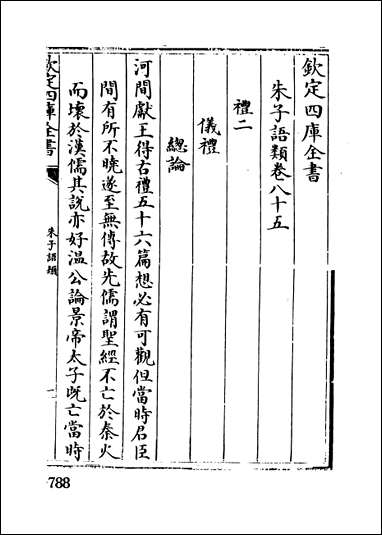 欽定四庫全書
朱子語類卷八十五
禮二
儀禮
總論
河間獻王得古禮五十六篇想必有可觀但當時君臣
間有所不曉遂至無傳故先儒謂聖經不亡於秦火
而壞於漢儒其說亦好溫公論景帝太子旣亡當時
欽定四庫全書
朱子語類
一
788